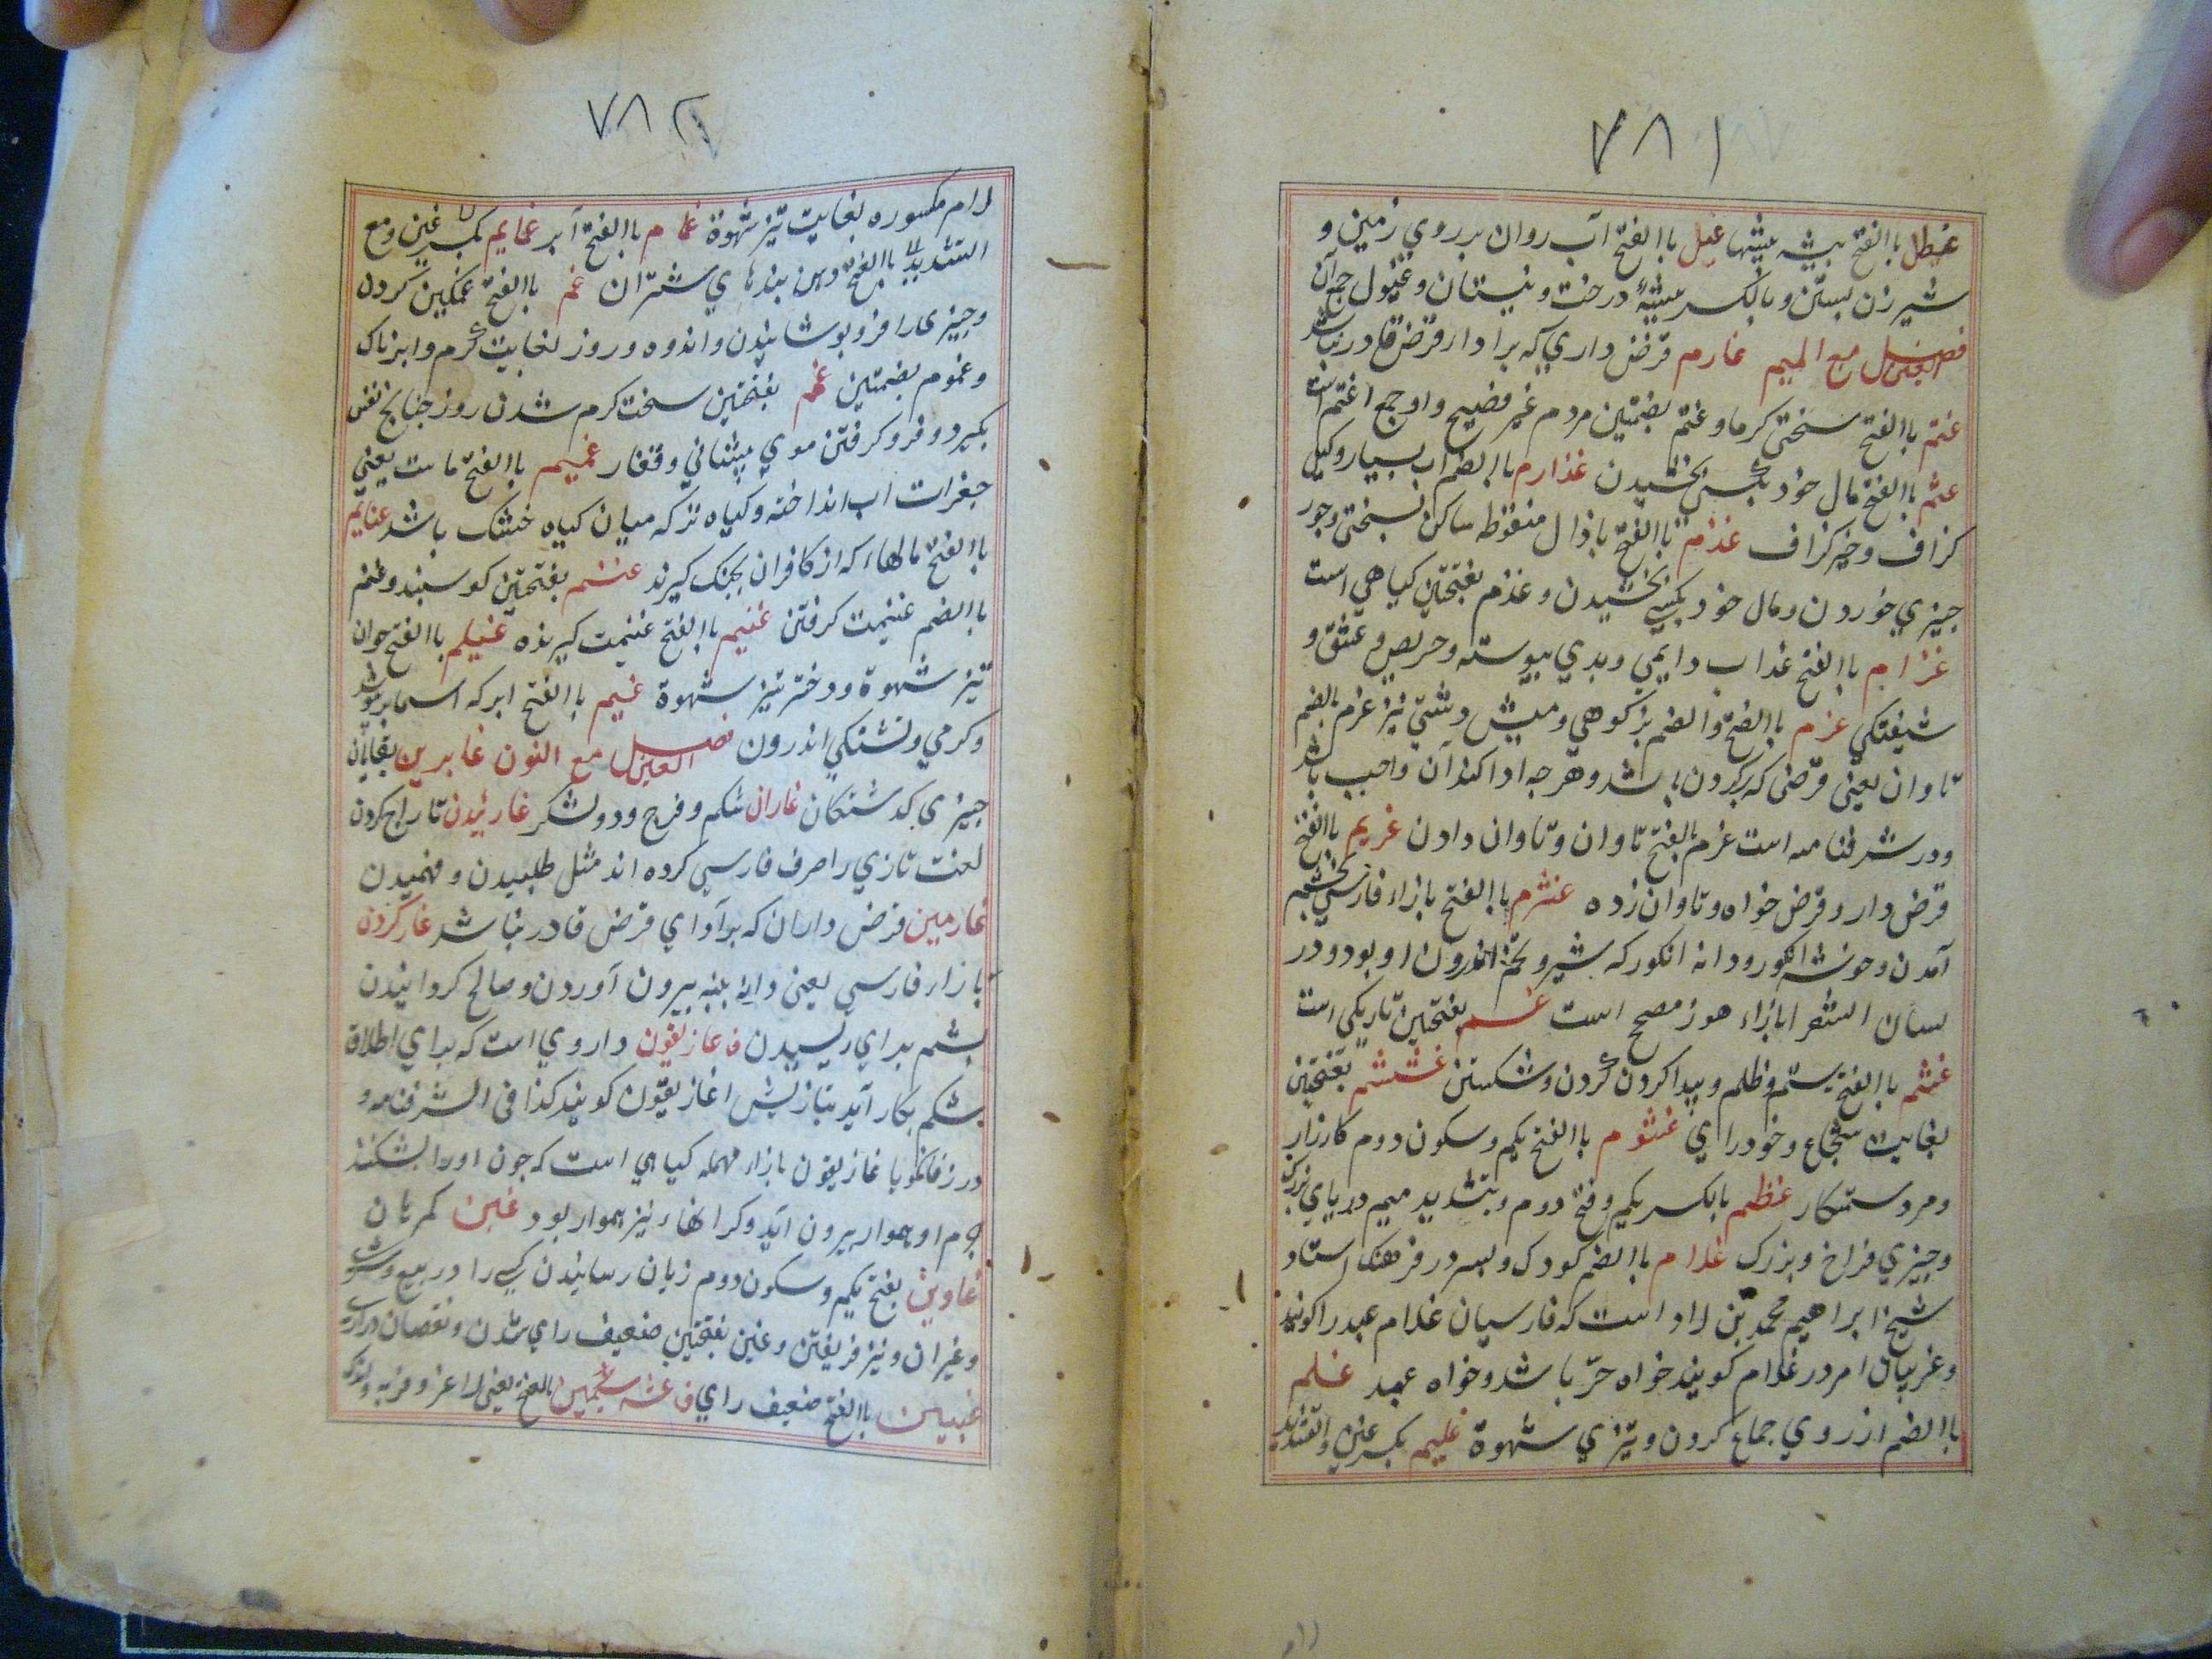 ۷۸۱
غیطل باالفتح بیشه بیشها غیل باالفتح آب روان بر روی زمین و
شیر زن بستن و بالکسر بیشهٔ درخت و نیستان و غیول جمع آن
فصل الغین مع المیم غارم قرض داری که برا دار قرض قادر نباشد
غتم باالفتح سختی کرما و غتم بضمتین مردم غیر فصیح واو جمع اغتم است
غثم باالفتح مال خود بکسی بخشیدن غذارم باالضم اب بسیار و کیل
کزاف و خیر کزاف غذم باالفتح با ذال منقوطه ساکن بسختی و جور
چیزی خوردن و مال خود بکسی بخشیدن و غذم بفتحتین کیاهی است
غرام باالفتح عذاب دایمی و بدی پیوسته و حریص و عشق و
شیفتکی غرم باالفتح والضم بز کوهی و میش دشتی نیز غرم بالضم
تاوان یعنی قرضی که بر کردن باشد و هرجه ادا کند آن واجب باشد
و در شرفنامه است غرم بالفتح تاوان و تاوان دادن غریم باالفتح
قرض دار و قرض خواه و تاوان زده غثرم باالفتح با زاء فارسی بخشم
آمدن و خوشه انکور و دانه انکور که شیر و تخم اندرون او بود و در
لسان الشعرا بازاء هوز مصحح است غسم بفتحتین تاریکی است
غشم باالفتح ستم و ظلم و بیدا کردن کردن و شکستن غشمشم بفتحتین
بغایت شجاع و خودرای غشوم باالفتح یکم و سکون دوم کارزار
و مرد ستمکار غطم بالکسر یکم و فتح دوم و بتشدید میم دریای بزرک
و چیزی فراخ و بزرک غلام باالضم کودک و بسر در فرهنک استاد
شیخ ابراهیم محمد بن لاد است که فارسیان غلام عبد را کویند
و عربیان امرد را غلام کویند خواه حر باشد و خواه عبد غلم
باالضم از روی جماع کردن و تیزی شهوة غلیم بکسر غین والتشدید
۷۸۲
لام مکسوره بغایت تیز شهوة غمام باالفتح آبر غمایم بکسر غین و مع
التشدید باالفتح دهن بندهای شتران غم باالفتح غمکین کردن
و چیزی را فرو بوشانیدن و اندوه و روز بغایت کرم و ابر ناک
و غموم بضمتین غمم بفتحتین سخت کرم شدن روز جنانج نفس
بکیرد و فرو کرفتن موی پیشانی و قفار غمیم باالفتح ماست یعنی
جغرات اب انداخته و کیاه تر که میان کیاه خشک باشد غنایم
باالفتح مالهاء که از کافران بجنک کیرند غنم بفتحتین کوسبند و غنم
باالضم غنیمت کرفتن غنیم باالفتح غنیمت کیرنده غیلم باالفتح جوان
تیز شهوة و دختر تیز شهوة غیم باالفتح ابر که اسما بر بوشد
و کرمی و تشنکی اندرون فصل الغین مع النون غابرین بقایان
چیزی کدشتکان غاران شکم و فرج و دو لشکر غارتیدن تاراج کردن
لغت تازی را صرف فارسی کرده اند مثل طلبیدن و فهمیدن
غارمین قرض داران که بر آوای قرض قادر نباشد غاز کردن
با زاء فارسی یعنی دانه بنبه بیرون آوردن و صالح کردانیدن
بشم برای ریسیدن ف غازیقون داروی است که برای اطلاق
شکم بکار آید بتازیش اغاریقون کویند کذا فی الشرفنامه و
در زفانکویا غازیقون بازاء مهمله کیاهی است که جون او را بشکنند
جرم او هموار بیرون آید و کرانهاء نیز هموار بود غبن کمرتان
غاوین بفتح یکم و سکون دوم زیان رسانیدن کسی را در بیع و شری
و غیران و نیز فریفتن و غبن بفتحتین ضعیف رای شدن و نقصان در رای
غبین باالفتح ضعیف رای ف غث سمین بالفتح یعنی لاغر و فربه